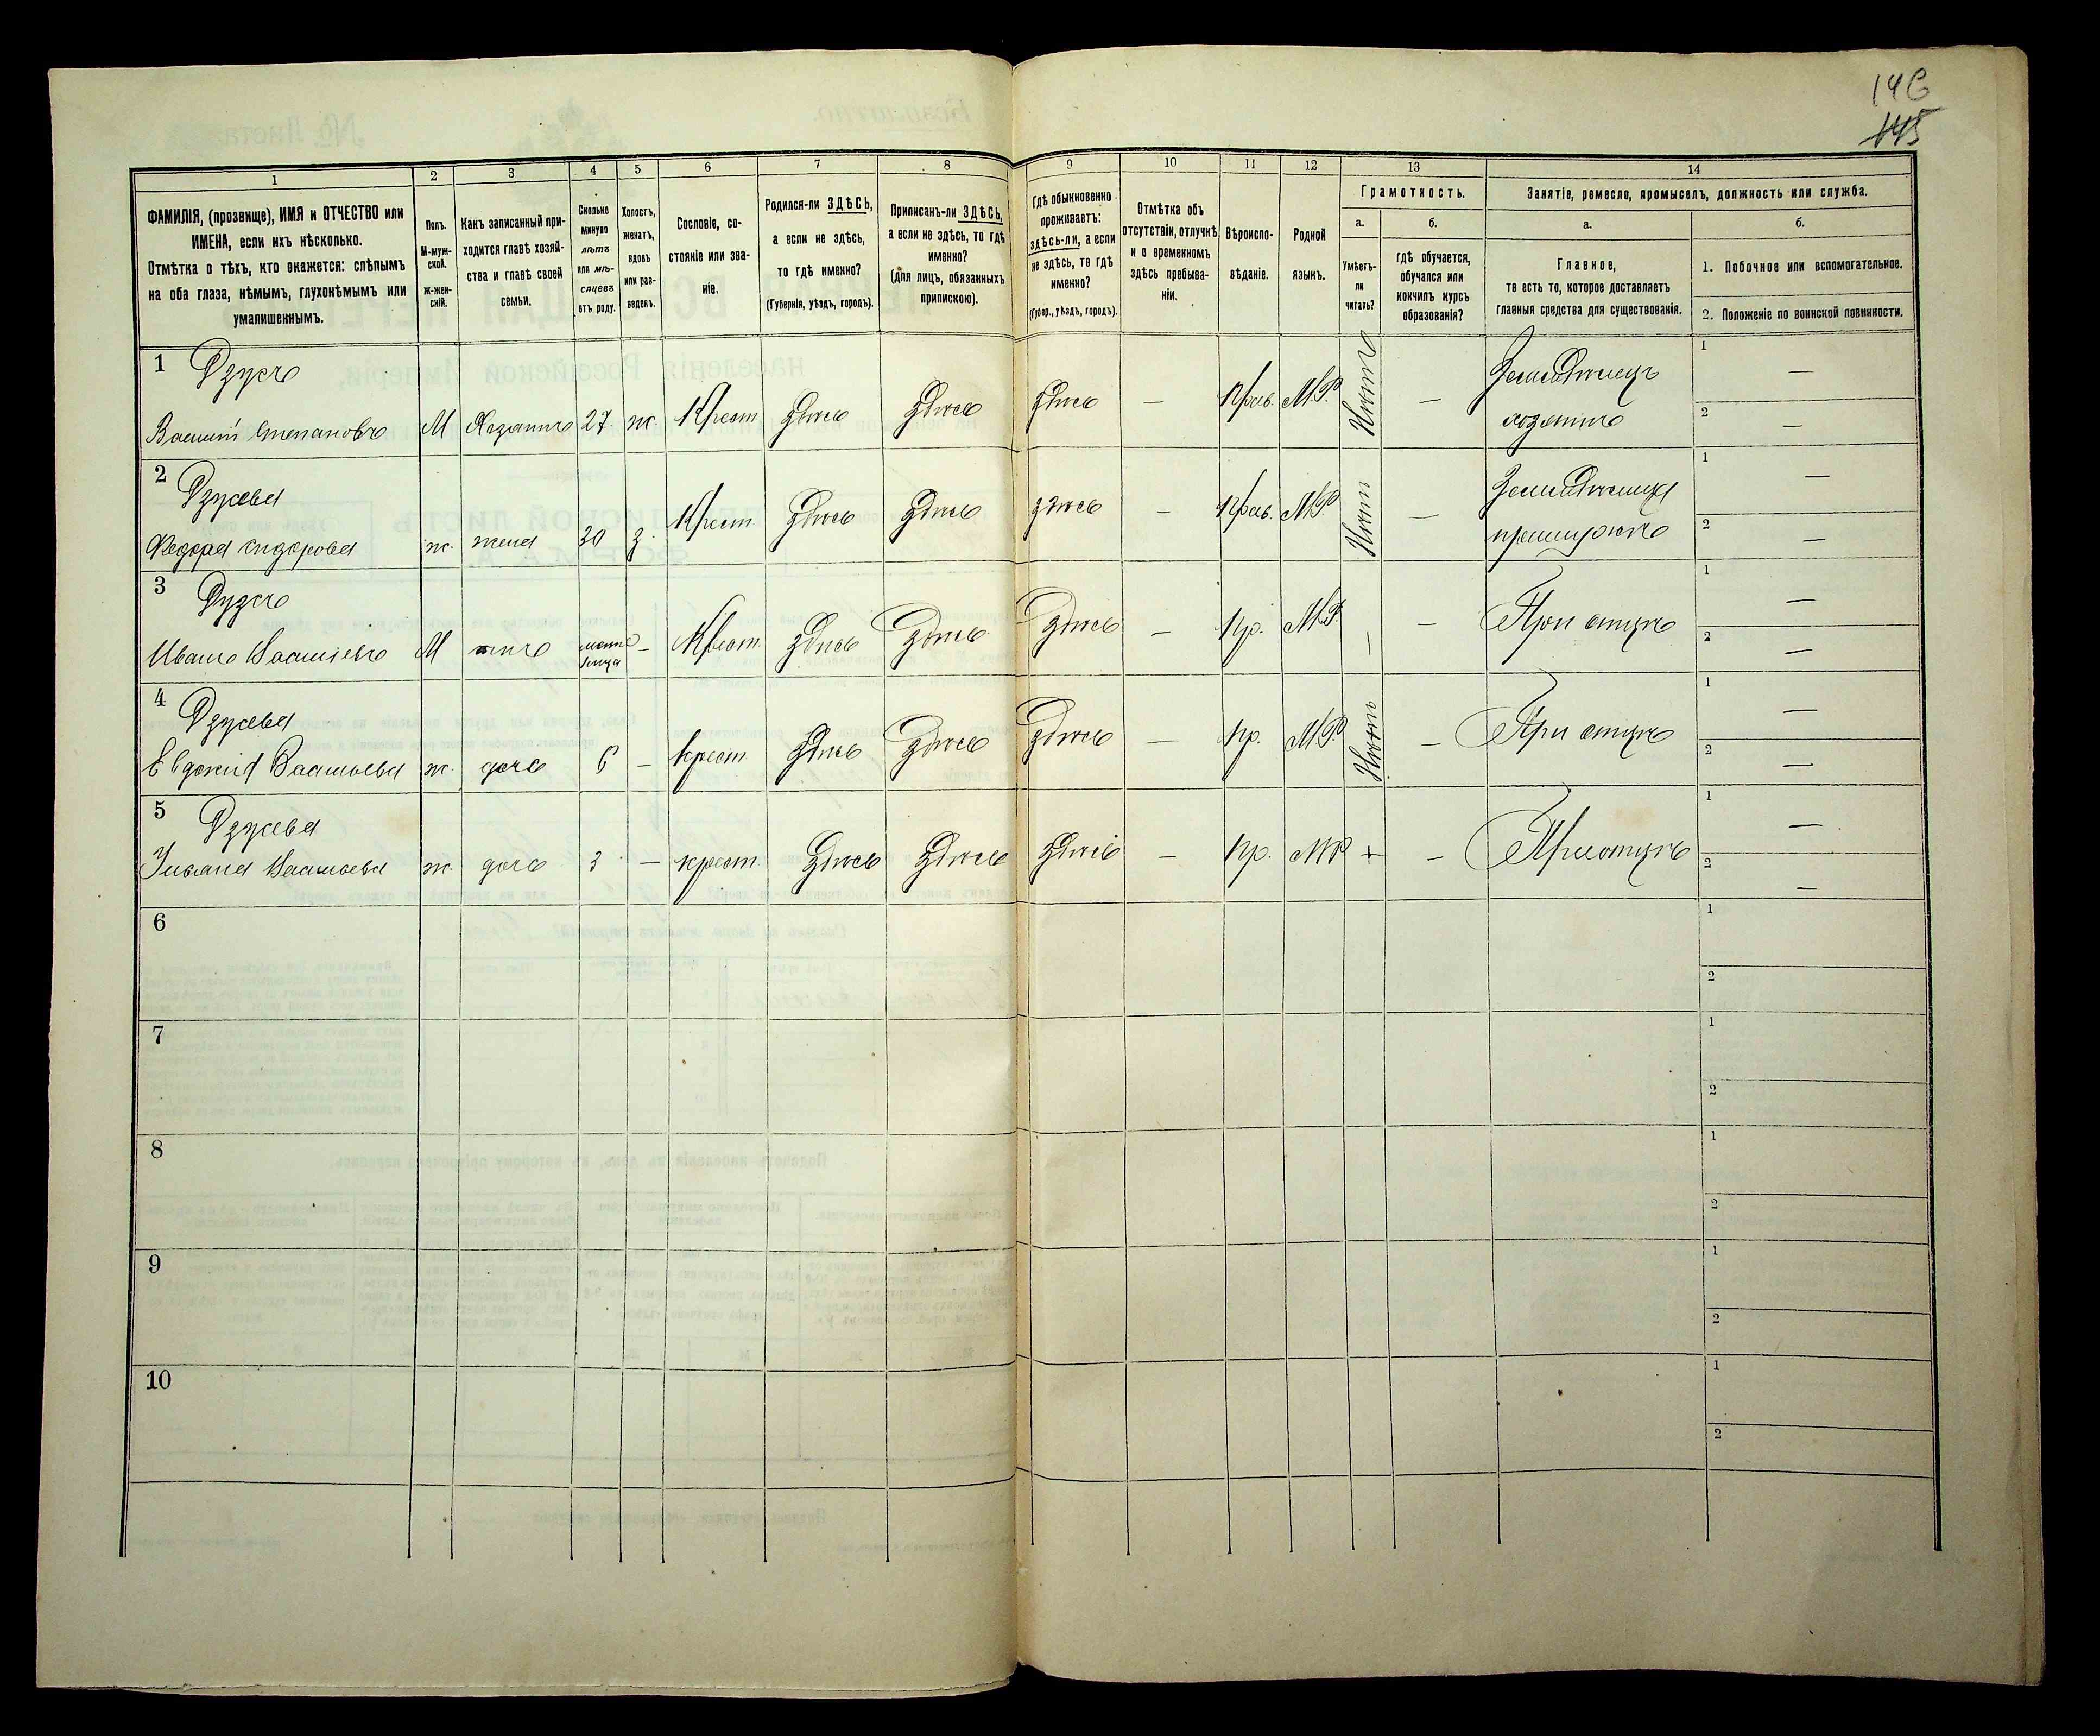 146
145
1
2
3
4
5
6
7
8
9
10
11
12
13
14
ФАМИЛІЯ, (прозвище), ИМЯ и ОТЧЕСТВО или
ИМЕНА, если ихъ нѣсколько.
Отмѣтка о тѣхъ, кто окажется: слѣпымъ
на оба глаза, нѣмымъ, глухонѣмымъ или
умалишеннымъ.
Полъ.
М-муж-
ской.
ж-жен-
скій.
Какъ записанный при-
ходится главѣ хозяй-
ства и главѣ своей
семьи.
Сколько
минуло
лѣтъ
или мѣ-
сяцевъ
отъ роду.
Холостъ,
женатъ,
вдовъ
или раз-
веденъ.
Сословіе, со-
стояніе или зва-
ніе.
Родился-ли ЗДѢСЬ,
а если не здѣсь,
то гдѣ именно?
(Губернія, уѣздъ, городъ).
Приписанъ-ли ЗДѢСЬ,
а если не здѣсь, то гдѣ
именно?
(для лицъ, обязанныхъ
припискою).
Гдѣ обыкновенно
проживаетъ:
здѣсь-ли, а если
не здѣсь, то гдѣ
именно?
(Губер., уѣздъ, городъ).
Отмѣтка объ
отсутствіи, отлучкѣ
и о временномъ
здѣсь пребыва-
ніи.
Вѣроиспо-
вѣданіе.
Родной
языкъ.
Грамотность.
а.
Умѣетъ-
ли
читать?
б.
гдѣ обучается,
обучался или
кончилъ курсъ
образованія?
Занятіе, ремесло, промыселъ, должность или служба.
а.
Главное,
то есть то, которое доставляетъ
главныя средства для существованія.
б.
1. Побочное или вспомогательное.
2. Положеніе по воинской повинности.
1 Дзусъ
Василій Степановъ М Хозяинъ 27 ж. Крест. здѣсь здѣсь здѣсь — Прав. М.Р. Нѣтъ — Земледѣлецъ
хозяинъ
1 —
2 —
2 Дзусева
Федора Сидорова ж. жена 30 з. Крест. здѣсь здѣсь здѣсь — Прав. М.Р. Нѣтъ —
1 —
2 —
3
Иванъ Васильевъ М сынъ — Крест. здѣсь здѣсь здѣсь — Пр. М.Р. — — При отцѣ
1 —
2 —
4 Дзусева
Евдокія Васильева ж. дочь 6 — крест. здѣсь здѣсь здѣсь — пр. М.Р. Нѣтъ — При отцѣ
1 —
2 —
5 Дзусева
Ульяна Васильева ж. дочь 3 — крест. здѣсь здѣсь здѣсь — пр. МР + — При отцѣ
1 —
2 —
6
1
2
7
1
2
8
1
2
9
1
2
10
1
2